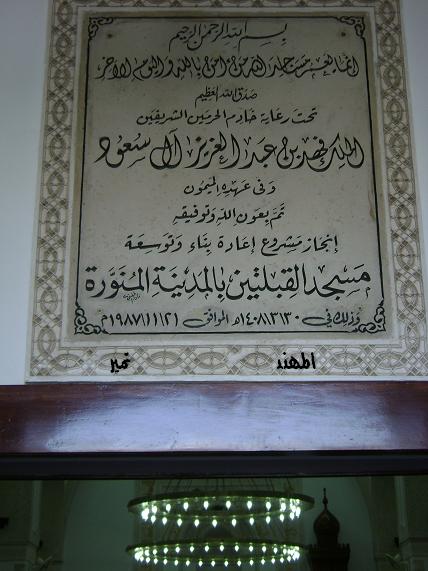 بسم الله الرحمن الرحيم
إنما يعمر مساجد الله من آمن بالله واليوم الآخر
صدق الله العظيم
تحت رعاية خادم الحرمين الشريفين
الملك فهد بن عبد العزيز آل سعود
وفي عهده الميمون
تم بعون الله وتوفيقه
إنجاز مشروع إعادة بناء وتوسعة
مسجد القبلتين بالمدينة المنورة
وذلك في ١٤٠٨/٣/٣٠هـ الموافق ١٩٨٧/١١/٢١م
المهند
تمير